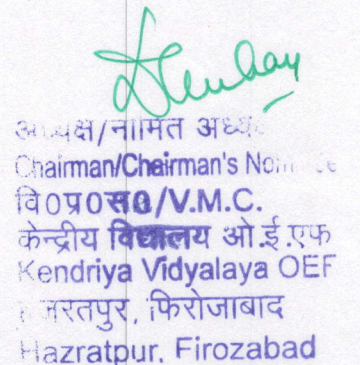 अध्यक्ष/नामित अध्यक्ष
Chairman/Chairman's Nominee
वि0प्र0स0/V.M.C.
केन्द्रीय विद्यालय ओ.ई.एफ
Kendriya Vidyalaya OEF
हजरतपुर, फिरोजाबाद
Hazratpur, Firozabad